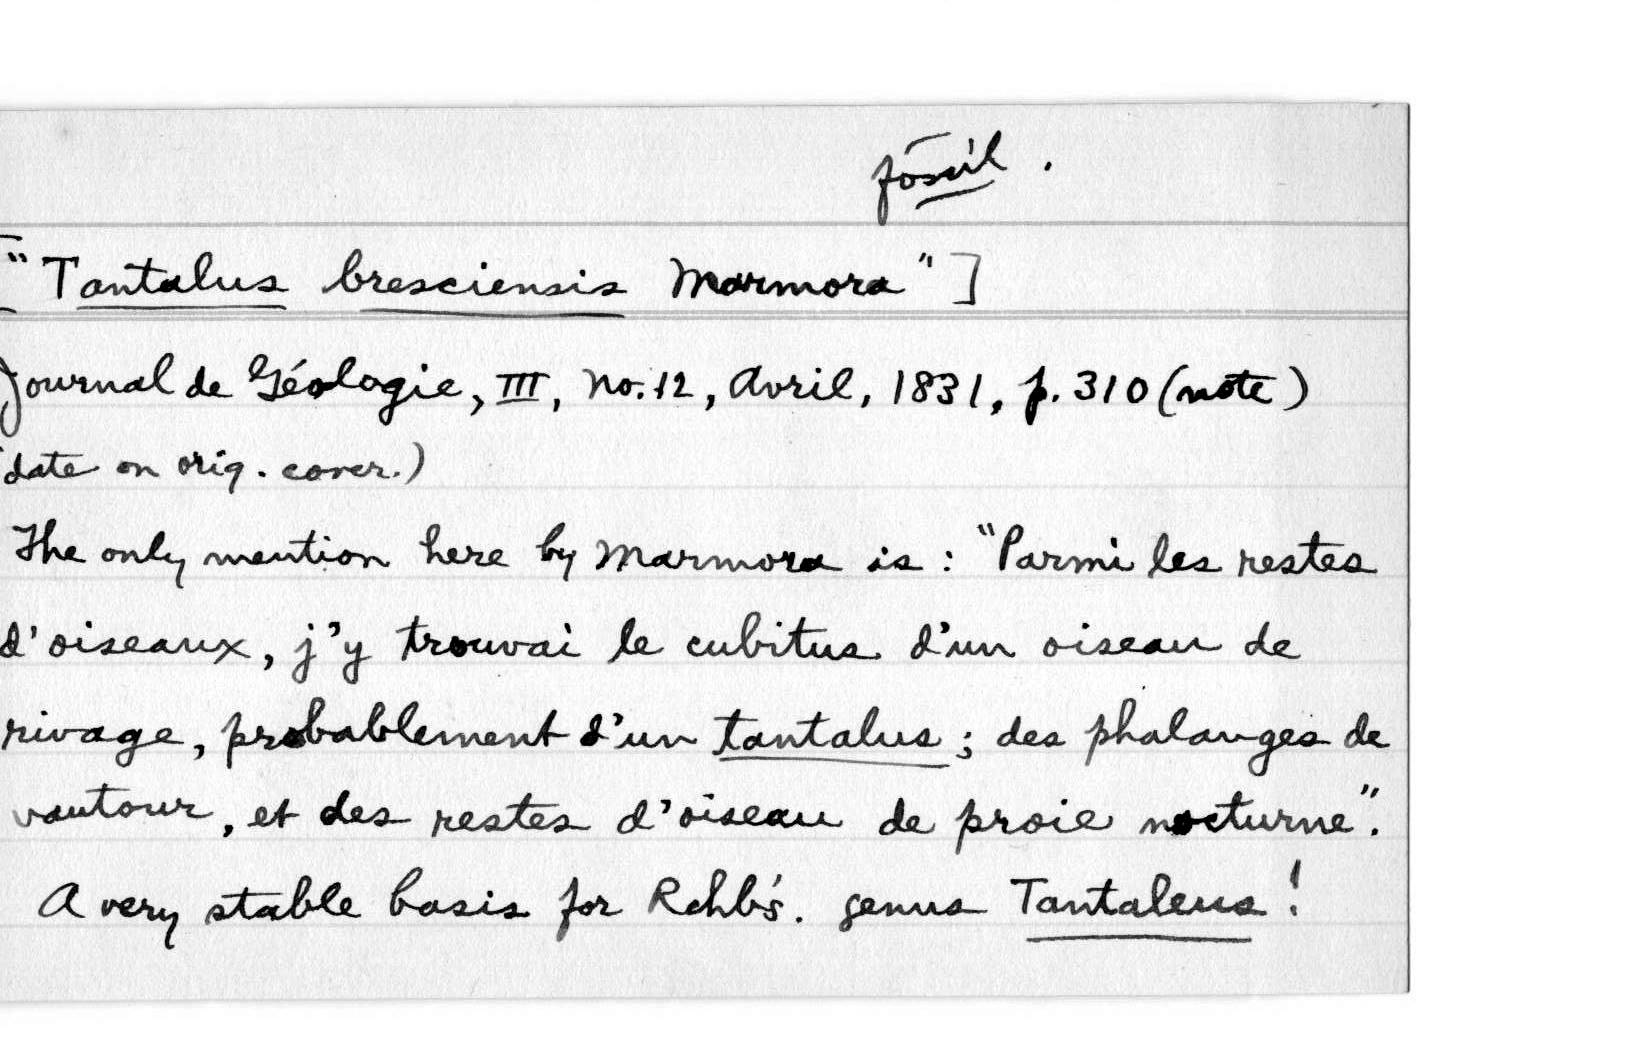 fossil.
["Tantalus bresciensis Marmora"]
Journal de Géologie, III, no. 12, Avril, 1831, p. 310 (note)
(date on orig. cover.)
The only mention here by Marmora is: "Parmi les restes
d'oiseaux, j'y trouvai le cubitus d'un oiseau de
rivage, probablement d'un tantalus; des phalanges de
vautour, et des restes d'oiseau de proie nocturne".
A very stable basis for Rchb's. genus Tantaleus!